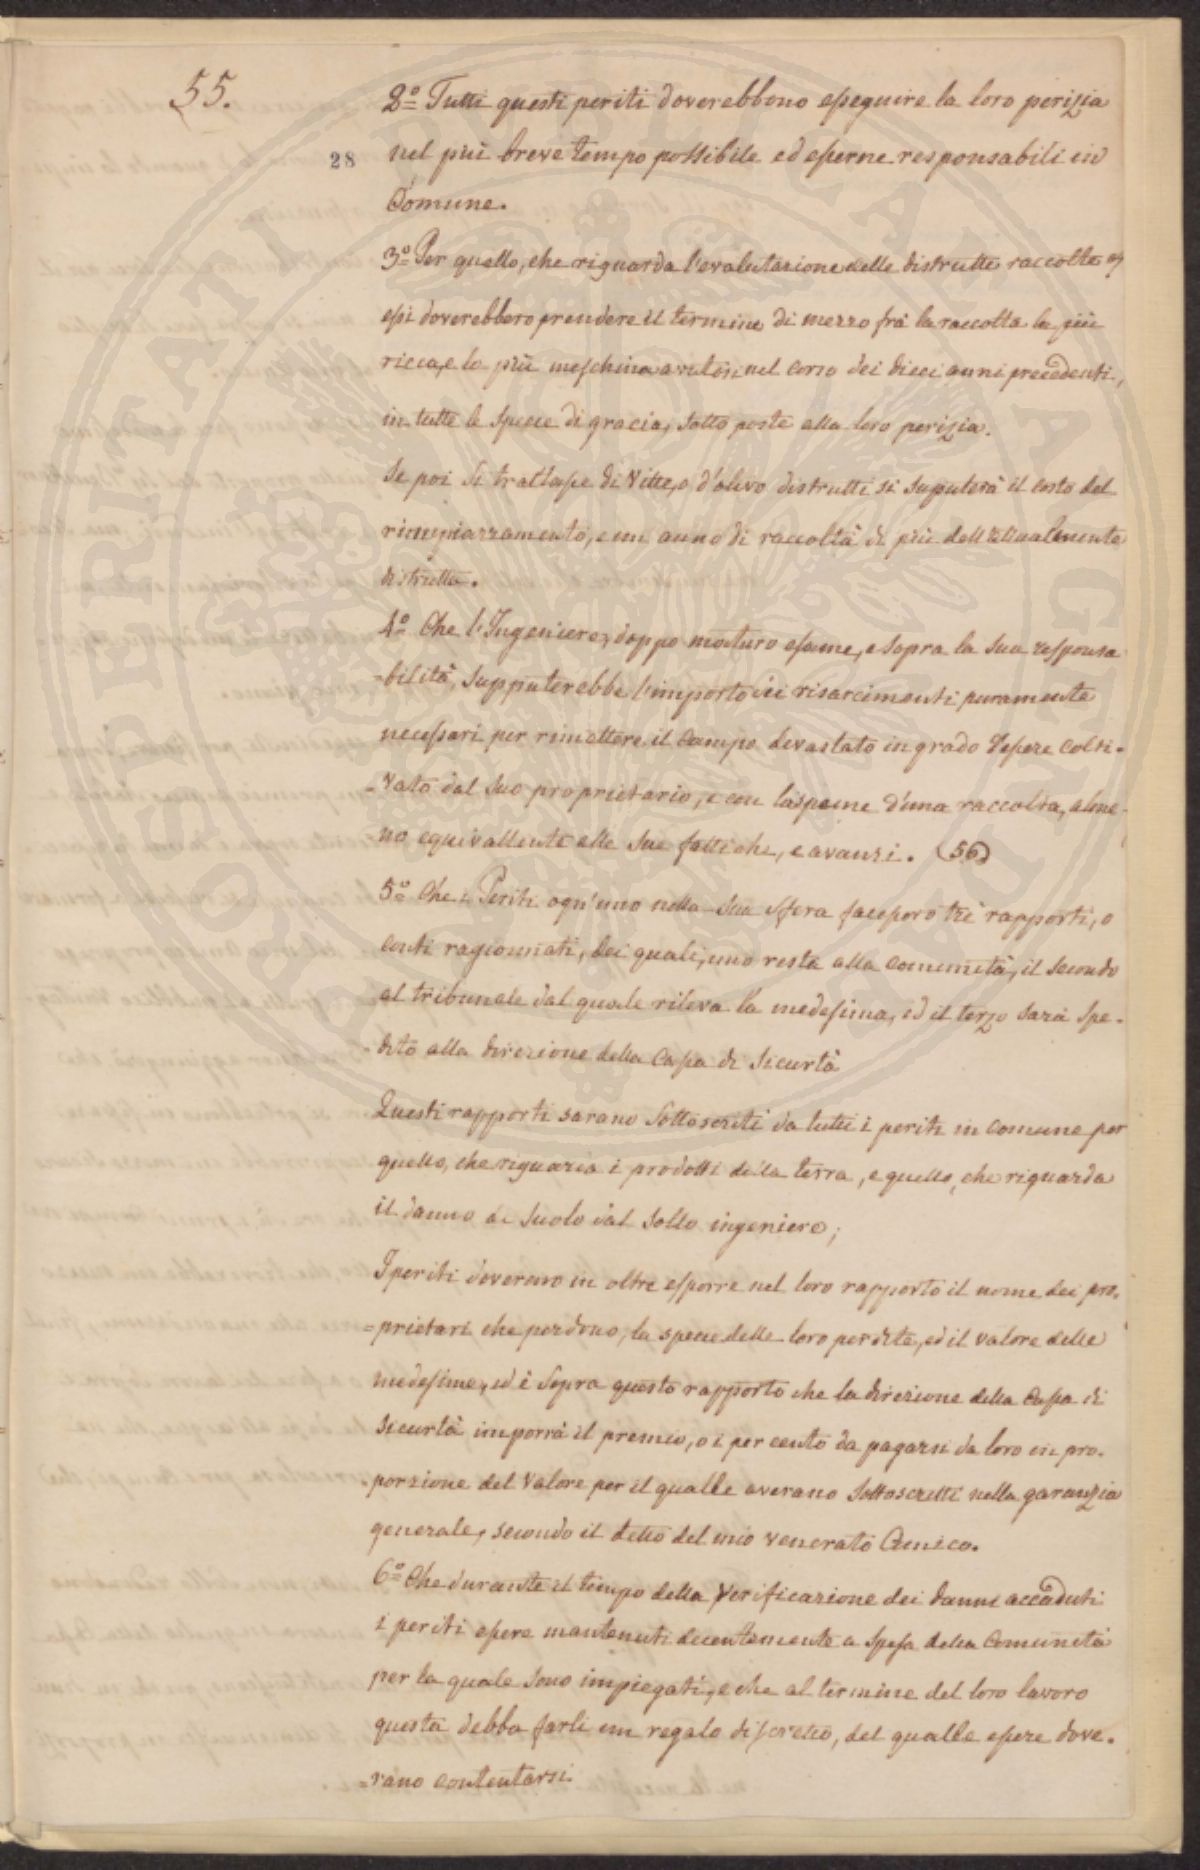 55.
28
2º Tutti questi periti doverebbono eseguire la loro perizia
nel più breve tempo possibile ed esserne responsabili in
Comune.
3º Per quello, che riguarda l'evalutazione delle distrutte raccolte
essi doverebbero prendere il termine di mezzo frà la raccolta la più
ricca, e la più meschina avutosi nel corso dei dieci anni precedenti,
in tutte le spece di gracia, sotto poste alla loro perizia.
Se poi si trattasse di Vitte, o d'olivo distrutti si suputerà il costo del
rimpiazzamento, e un anno di raccolta di più dell'attualmente
distrutta.
4º Che l'Ingeniere, doppo maturo esame, e sopra la sua responsa
=bilità, supputerebbe l'importo dei risarcimenti puramente
necessari per rimettere il campo devastato in grado d'essere colti=
=vato dal suo proprietario, e con la speme d'una raccolta, alme=
=no equivallente alle sue fattiche, e avanzi. (56)
5º Che i Periti ogn'uno nella sua sfera facessero trè rapporti, o
conti ragionnati, dei quali, uno resta alla comunità, il secondo
al tribunale dal quale rileva la medesima, ed il terzo sarà spe=
=dito alla direzione della Cassa di Sicurtà
Questi rapporti sarano sottoscritti da tutti i periti in comune per
quello, che riguarda i prodotti della terra, e quello, che riguarda
il danno de suolo dal sollo ingeniere;
I periti doverano in oltre esporre nel loro rapporto il nome dei pro=
=prietari che perdono, la spece delle loro perdite, ed il valore delle
medesime, ed è sopra questo rapporto che la direzione della Cassa di
Sicurtà imporrà il premio, o i per cento da pagarsi da loro in pro=
=porzione del valore per il qualle averano sottoscritti nella garanzia
generale, secondo il detto del mio venerato Amico.
6º Che durante il tempo della Verificazione dei danni accaduti
i periti essere mantenuti decentemente a spesa della Comunità
per la quale sono impiegati, e che al termine del loro lavoro
questa debba farli un regalo discretto, del qualle essere dove=
=rano contentarsi